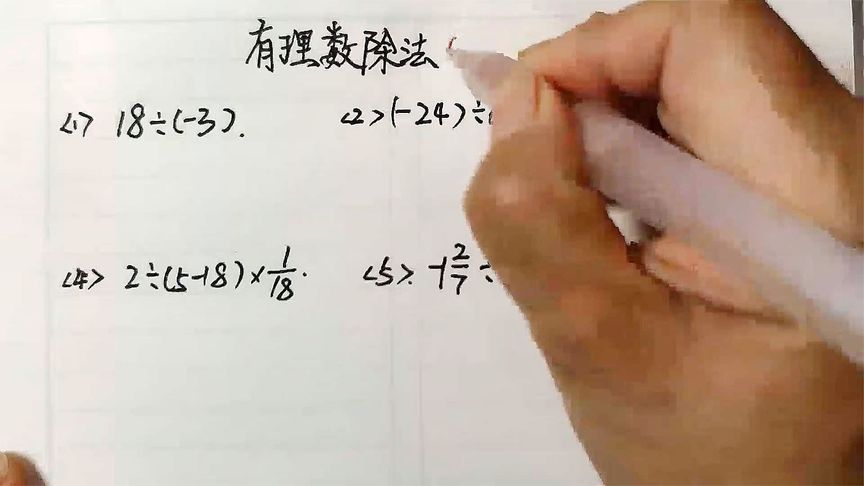 有理数除法
<1> 18÷(-3).
<2> (-24)÷
<4> 2÷(5-18)×1/18.
<5>. -1 2/7÷